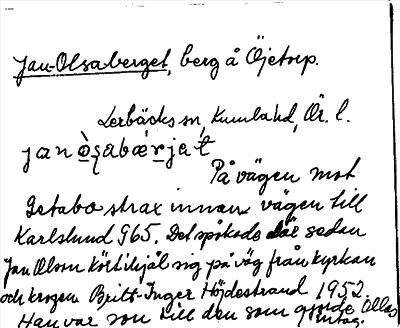 Jan-Olsaberget, berg å Öjetorp.
Lerbäcks sn, Kumla hd, Ör. l.
jan òsabærjat
På vägen mot
Getabo strax innan vägen till
Karlslund 965. Det spökade där sedan
Jan Olson kört ihjäl sig på väg från kyrkan
och krogen Britt-Inger Höjdestrand 1952.
Han var son till den som gjorde Ollas